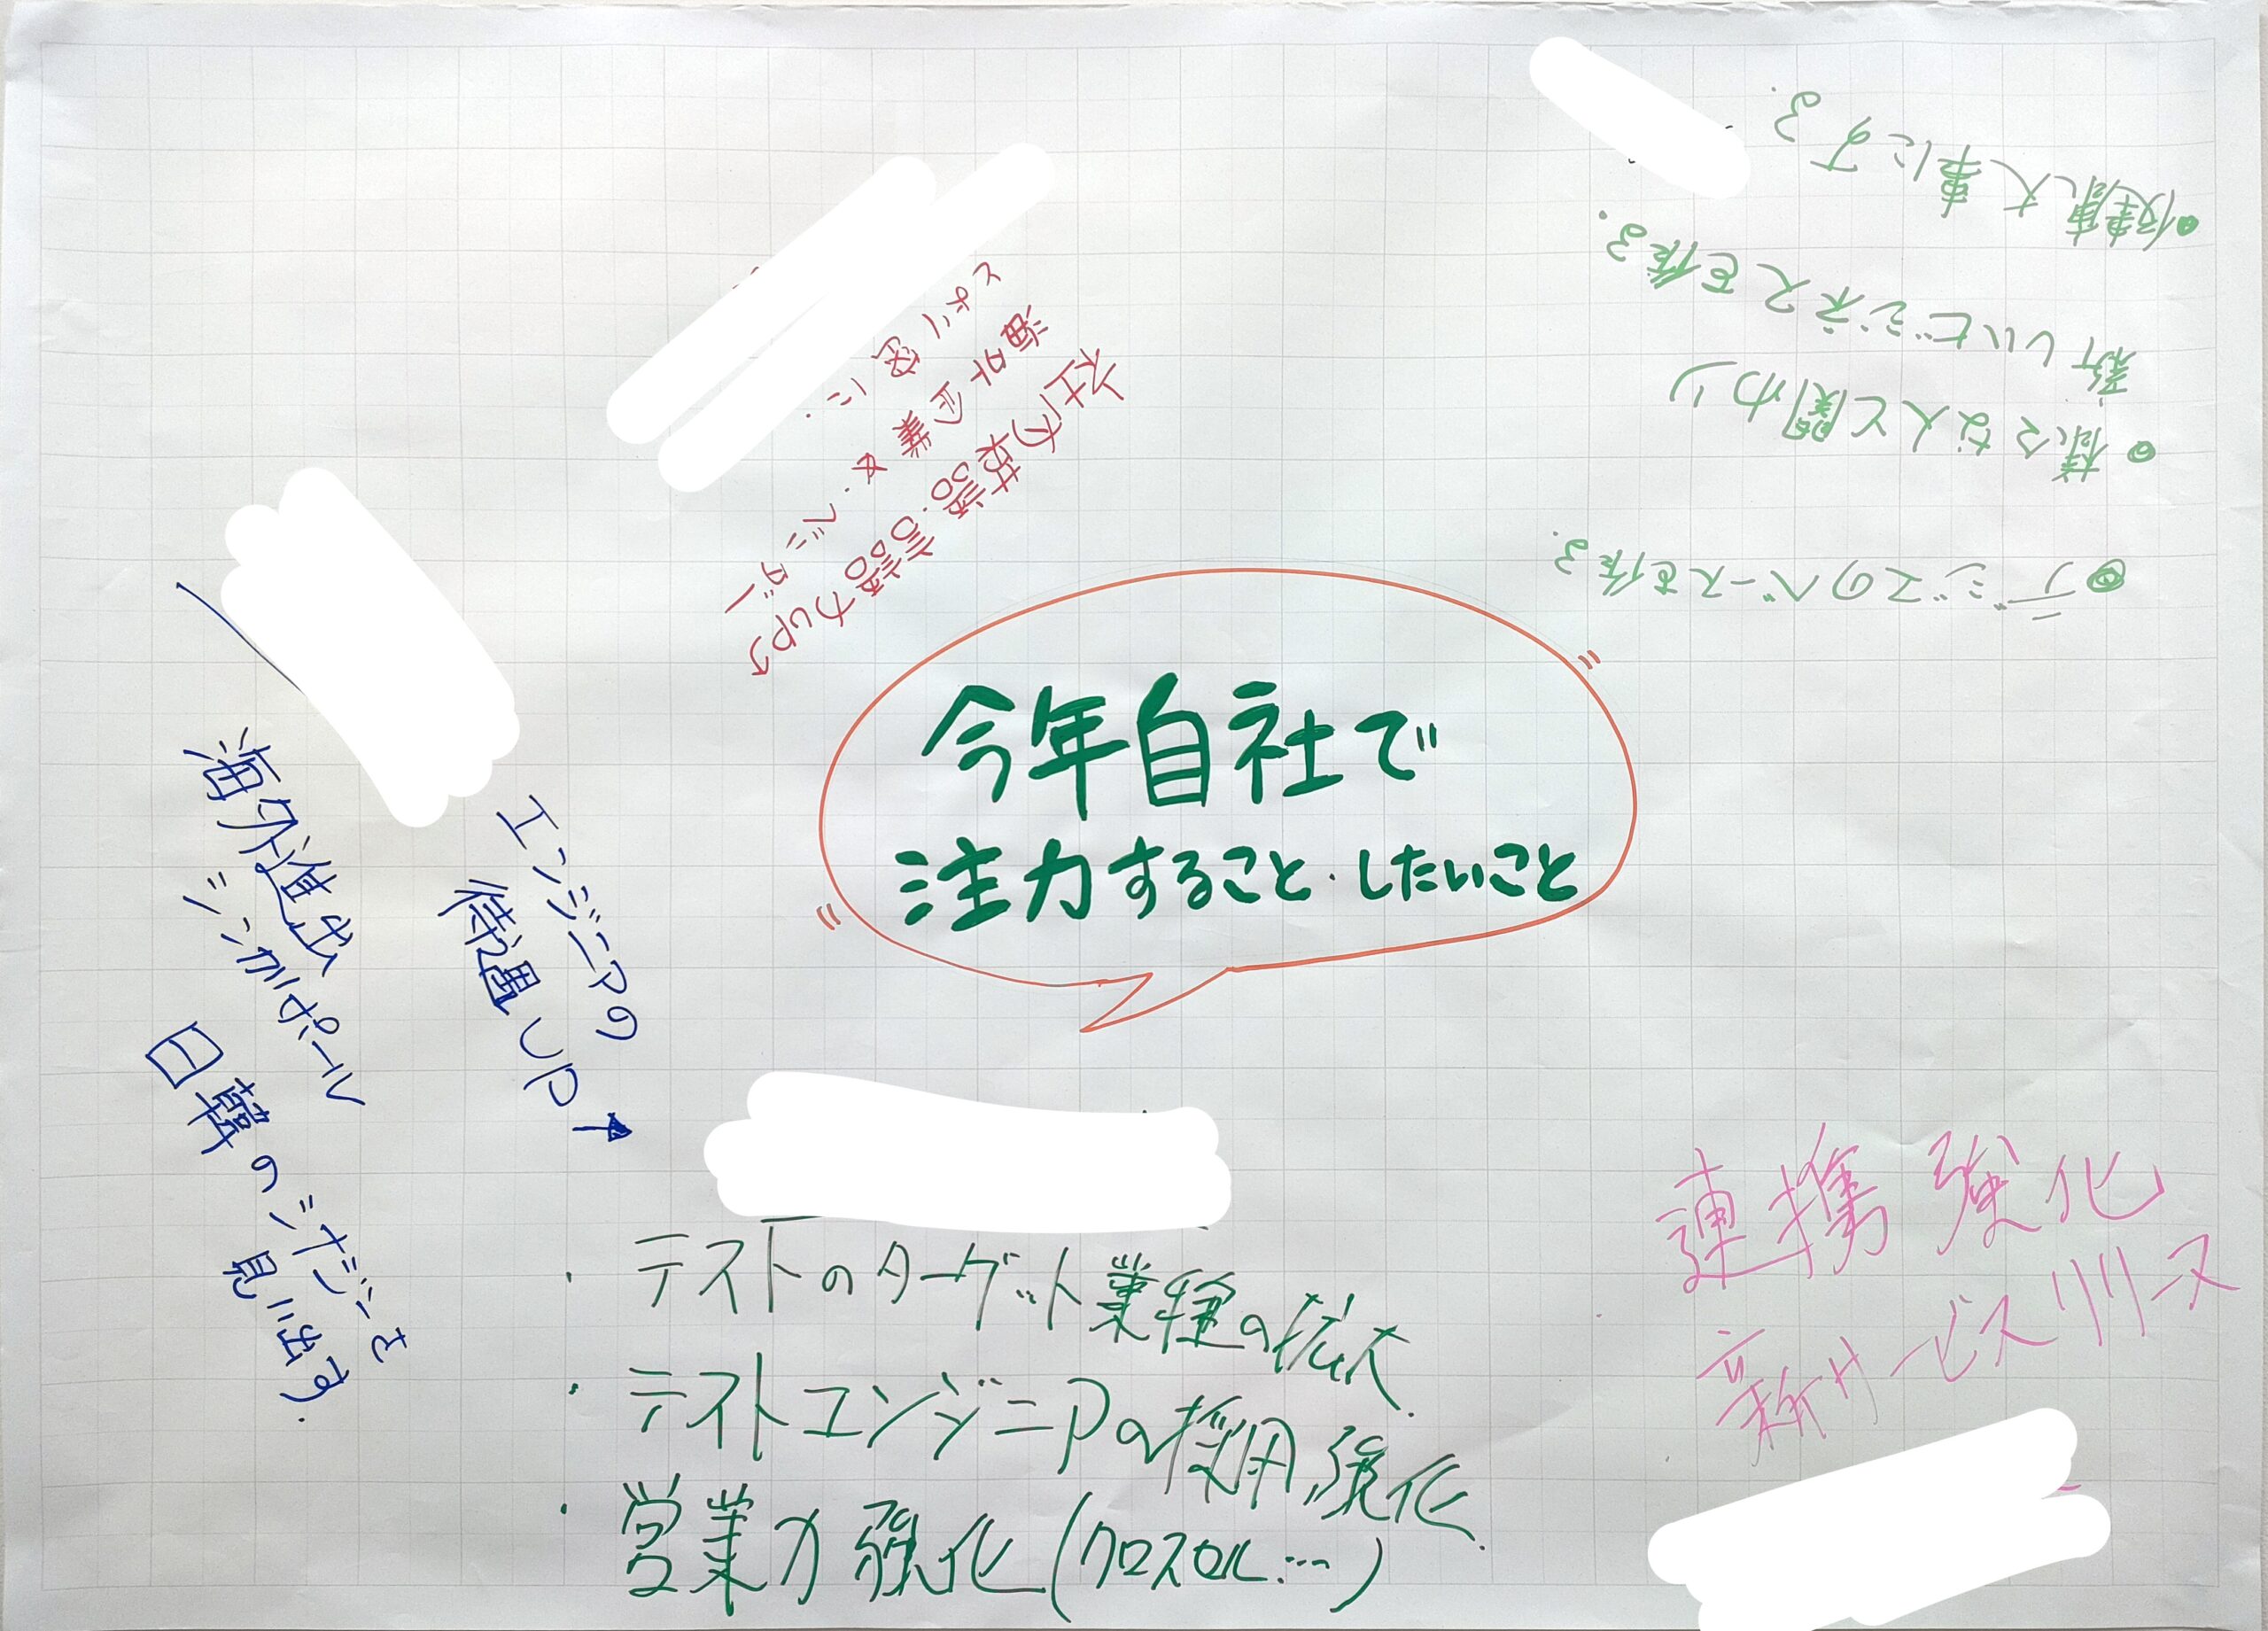 今年自社で
注力すること・したいこと
社内英語・言語力UP↑
海外企業・ベンダー
とより密に.
●健康大事にする.
●様々な人と関わり
新しいビジネスを作る.
●デジエのベースを作る.
エンジニアの
待遇UP↑
海外進出
シンガポール
日韓のシナジーを
見い出す.
・テストのターゲット業種の拡大.
・テストエンジニアの採用強化.
・営業力強化(クロスセル…)
連携強化
新サービスリリース